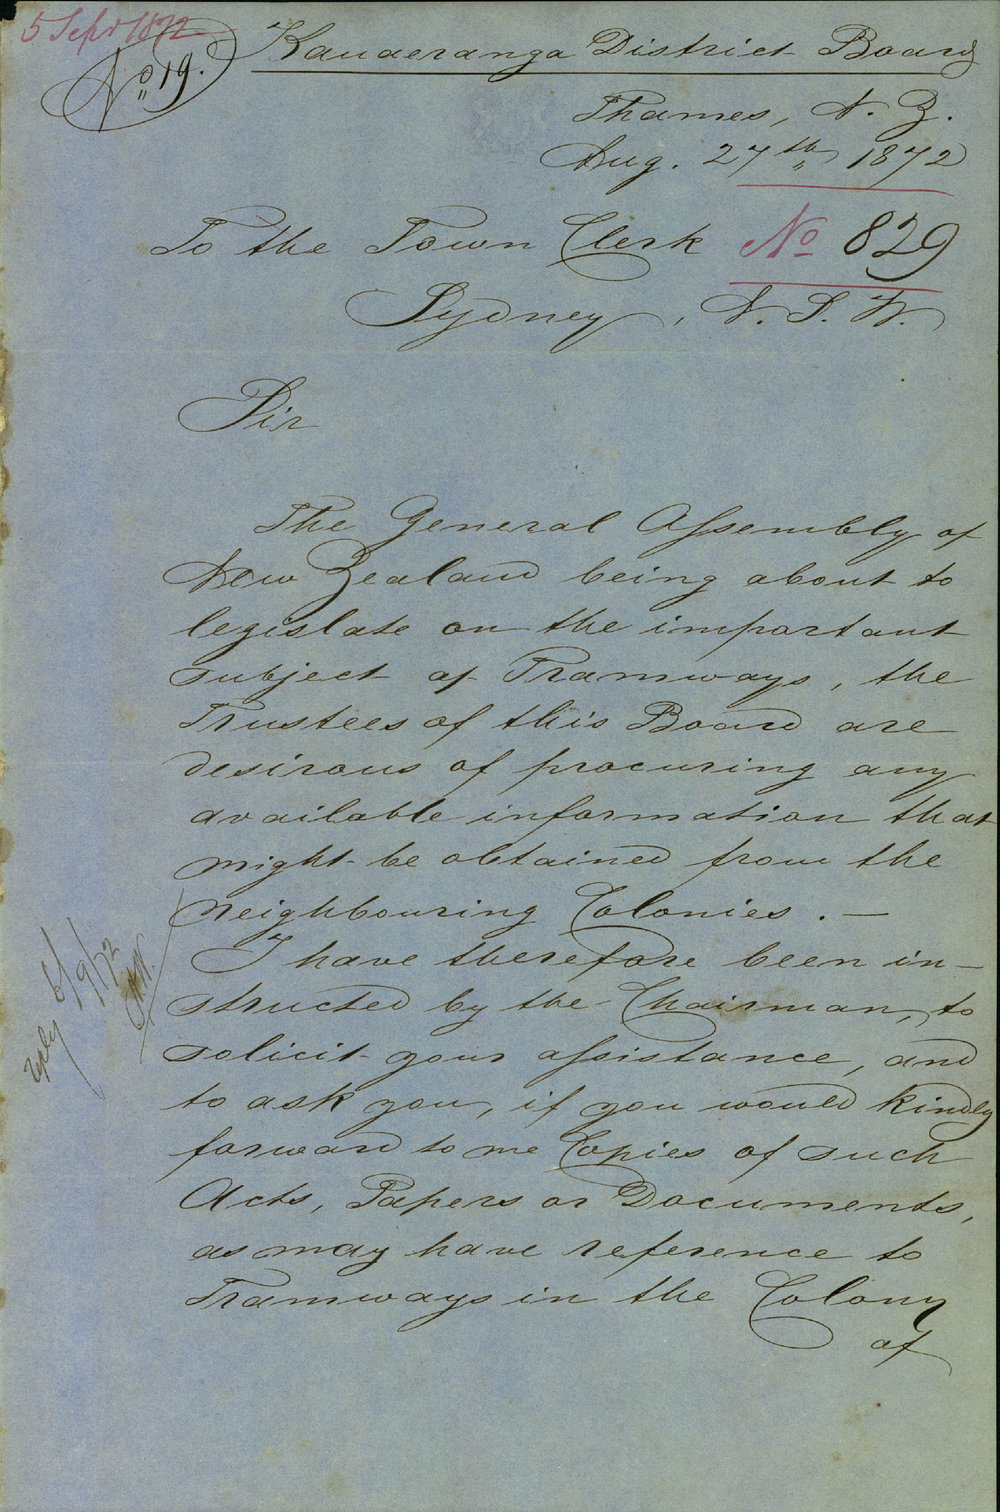 5 Sept 1872
No 19.
Kauaeranga District Board
Thames, N. Z.
Aug. 27th, 1872
To the Town Clerk No 829
Sydney, N. S. W.
Sir
The General Assembly of
New Zealand being about to
legislate on the important
subject of Tramways, the
Trustees of this Board are
desirous of procuring any
available information that
might be obtained from the
neighbouring Colonies. —
I have therefore been in-
structed by the Chairman, to
solicit your assistance, and
to ask you, if you would kindly
forward to me Copies of such
Acts, Papers or Documents,
as may have reference to
Tramways in the Colony
of
reply 6/9/72